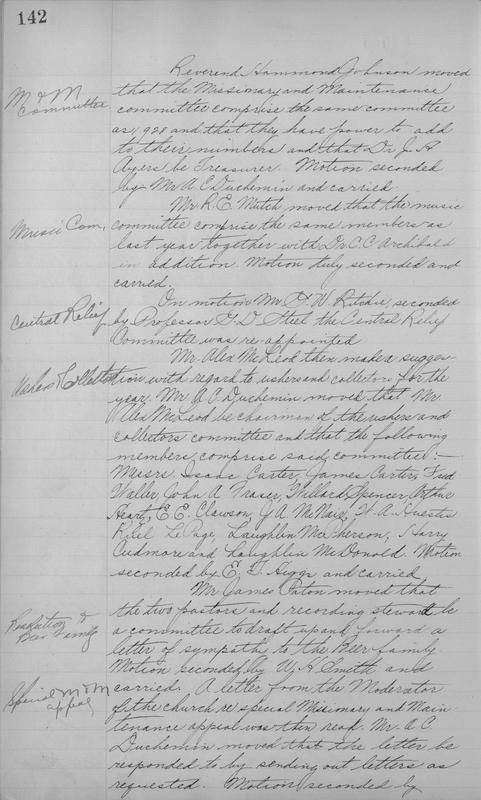 142
Reverend Hammond Johnson moved
M & M
Committee
that the Missionary and Maintenance
committee comprise the same committee
as 1928 and that they have power to add
to their numbers and that Dr J. A
Ayers be Treasurer. Motion seconded
by Mr A C Duchemin and carried
Mr R. E. Mutch moved that the music
Music Com.
committee comprise the same members as
last year together with Dr C. C. Archibald
in addition. Motion duly seconded and
carried.
On motion Mr W. Ritchie, seconded
Central Relief
by Professor G. D. Steel the Central Relief
Committee was re-appointed
Mr. Alex McLeod then made a sugges-
Ushers & Collectors
tion with regard to ushers and collectors for the
year. Mr A C Duchemin moved that Mr.
Alex McLeod be chairman of the ushers and
collectors committee and that the following
members comprise said committee:—
Messrs. Isaac Carter, James Carter, Fred
Waller, John A Fraser, Willard Spencer, Arthur
Heart, E. E. Clawson, McNair, W. A. Huestis
LePage, Laughlin McPherson, Harry
Cudmore and Laughlin McDonald. Motion
seconded by E. T. Higgs and carried
Mr James Paton moved that
the two pastors and recording steward be
Resolution &
Beer Family
a committee to draft up and forward a
letter of sympathy to the Beer family.
Motion seconded by W. A Smith and
Special M & M
appeal
carried. A letter from the Moderator
of the church re special Missionary and Main-
tenance appeal was then read. Mr. A. C.
Duchemin moved that the letter be
responded to by sending out letters as
requested. Motion seconded by